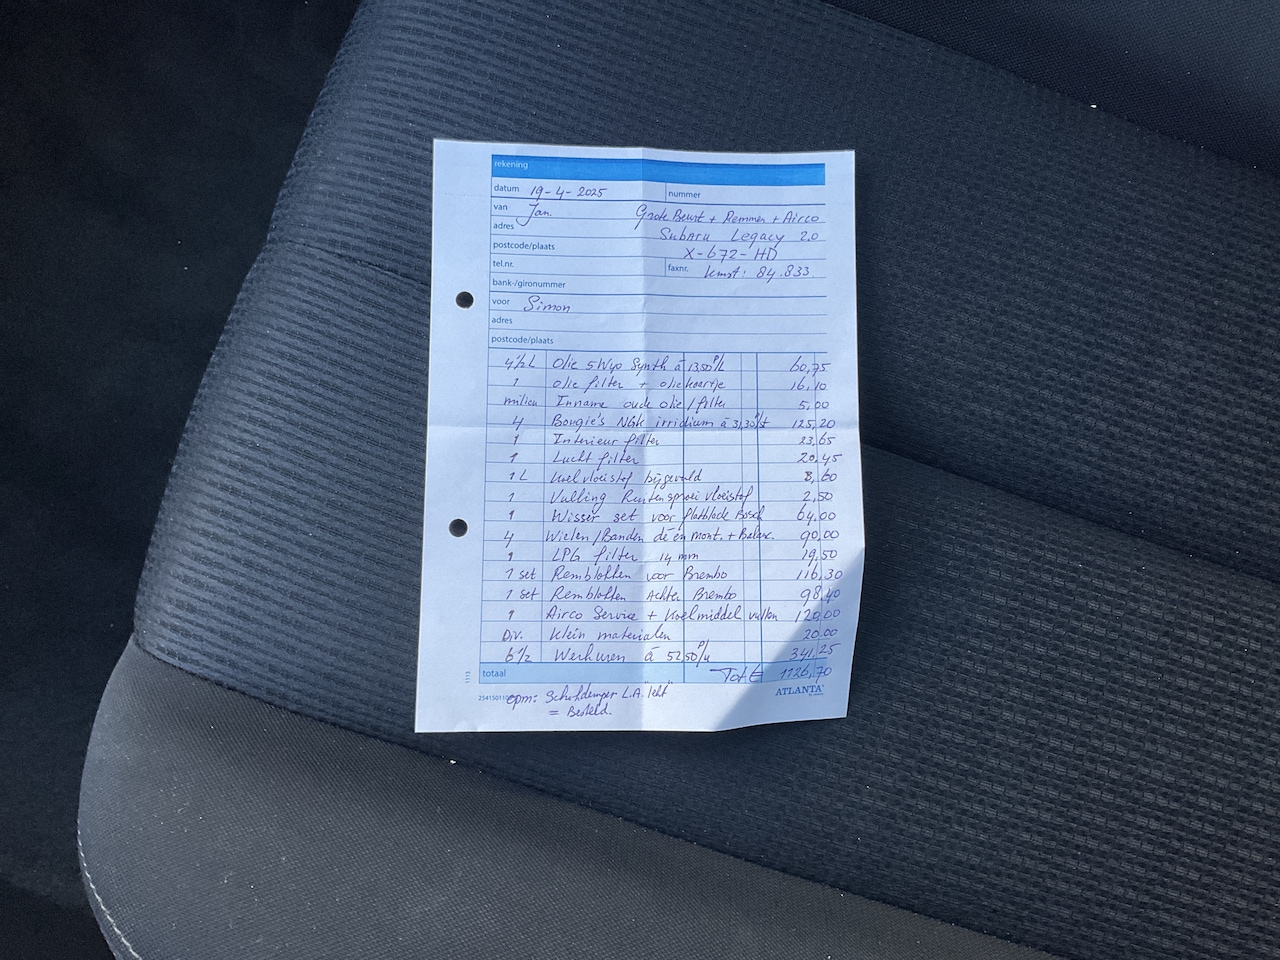 rekening
datum 19-4-2025 nummer
van Jan. Grote Beurt + Remmen + Airco
adres Subaru Legacy 2.0
postcode/plaats X-672-HD
tel.nr. faxnr. kmst: 84.833.
bank-/gironummer
voor Simon
adres
postcode/plaats
4½ L Olie 5W40 Synth á 13,50 P/L 60,75
1 olie filter + oliekaartje 16,10
milieu Inname oude olie/filter 5,00
4 Bougie's NGK irridium á 31,30 P/st 125,20
1 Interieur filter 23,65
1 Lucht filter 20,45
1 L Koelvloeistof bijgevuld 8,60
1 Vulling Ruitensproei vloeistof 2,50
1 Wisser set voor flatblade Bosch 64,00
4 Wielen/Banden de en mont. + Balanc. 90,00
1 LPG filter 14 mm 19,50
1 set Remblokken voor Brembo 116,30
1 set Remblokken Achter Brembo 98,40
1 Airco Service + Koelmiddel vullen 120,00
Div. Klein materialen 20,00
6½ Werkuren á 52,50 P/u 341,25
totaal Tot € 1126,70
1113 ATLANTA
opm: Schokdemper L.A. lekt
= Besteld.